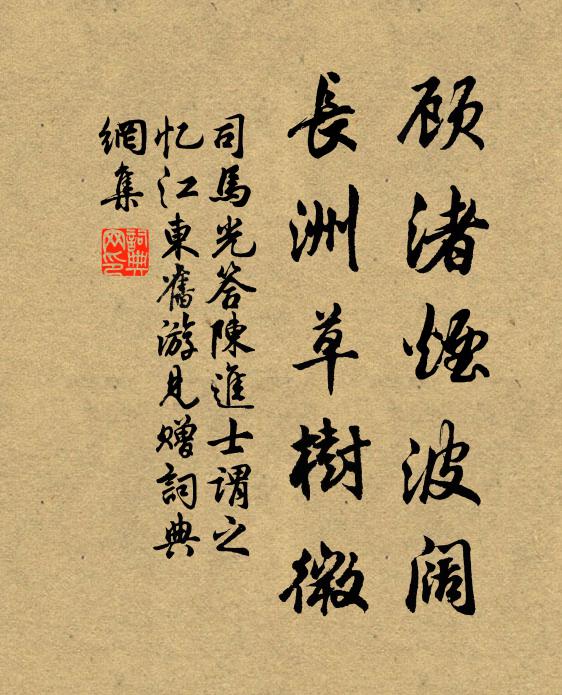 顾渚煙波阔
長洲草樹微
司馬光答陳進士謂之
忆江東舊游見贈詞典
網集
詞典
网印